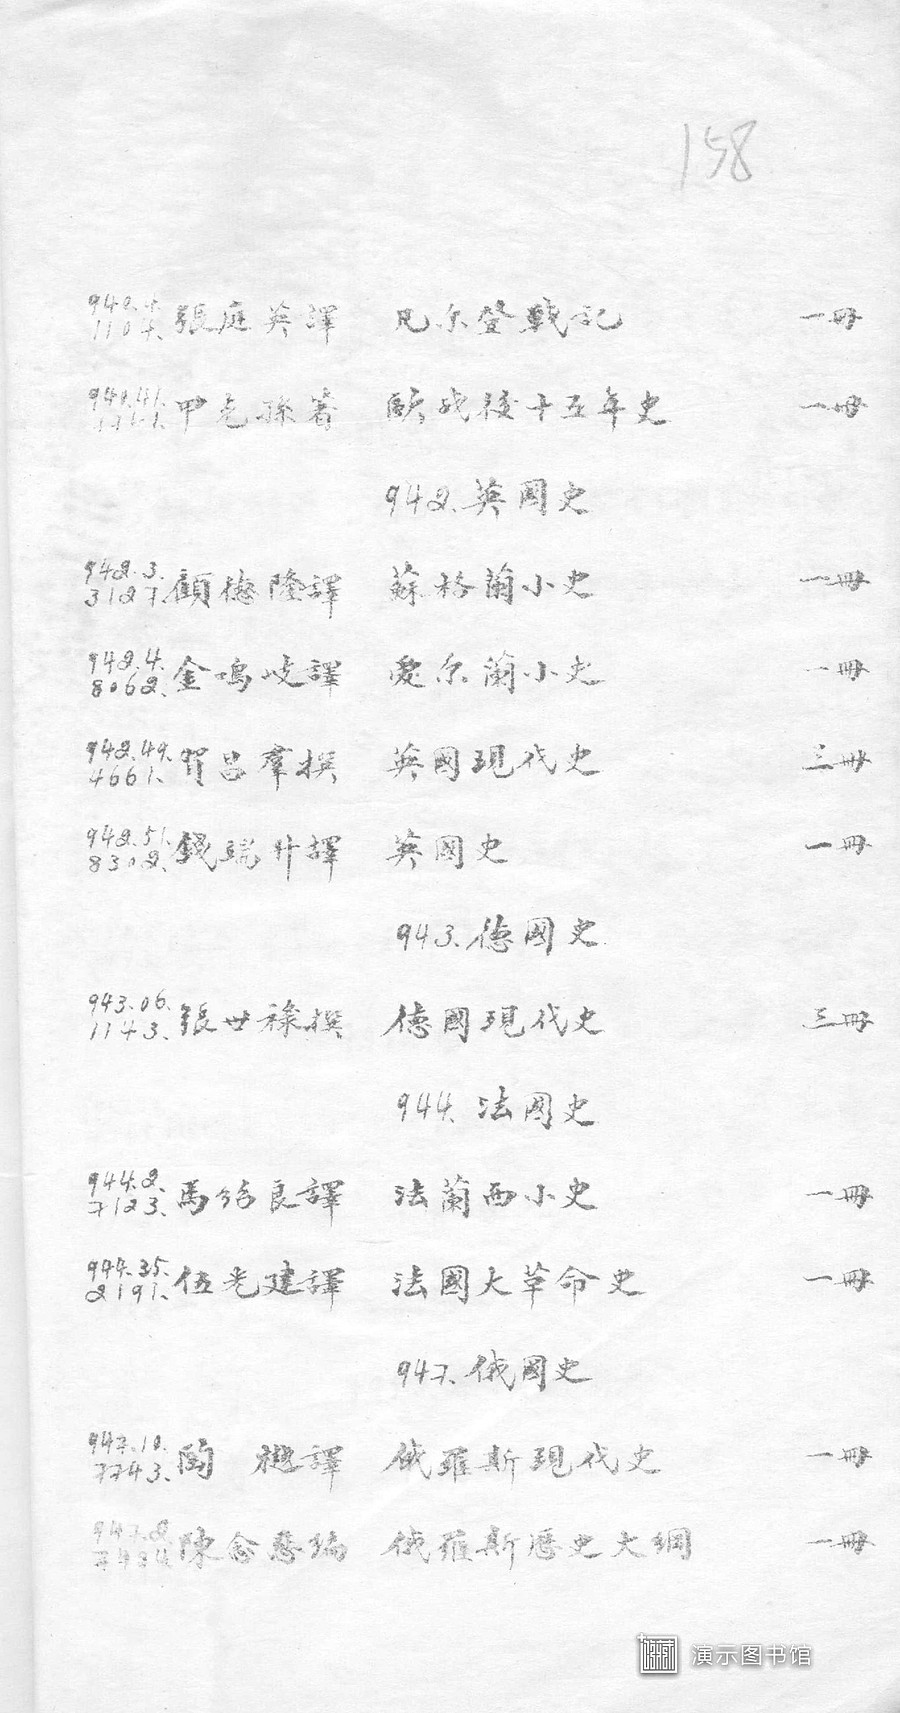 158
940.4. 1104. 張庭英譯 凡尔登戰記 一冊
940.41. 甲克孫著 歐战後十五年史 一冊
942. 英國史
942.3. 3127. 顧德隆譯 蘇格蘭小史 一冊
942.4. 8062. 金鳴岐譯 愛尔蘭小史 一冊
942.49. 4661. 賀昌羣撰 英國現代史 三冊
942.51. 8302. 錢端升譯 英國史 一冊
943. 德國史
943.06. 1143. 張世祿撰 德國現代史 三冊
944. 法國史
944.2. 7123. 馬紹良譯 法蘭西小史 一冊
944.35. 2191. 伍光建譯 法國大革命史 一冊
947. 俄國史
947.10. 7743. 陶樾譯 俄羅斯現代史 一冊
947.2. 陳念慈編 俄羅斯歷史大綱 一冊
演示图书馆